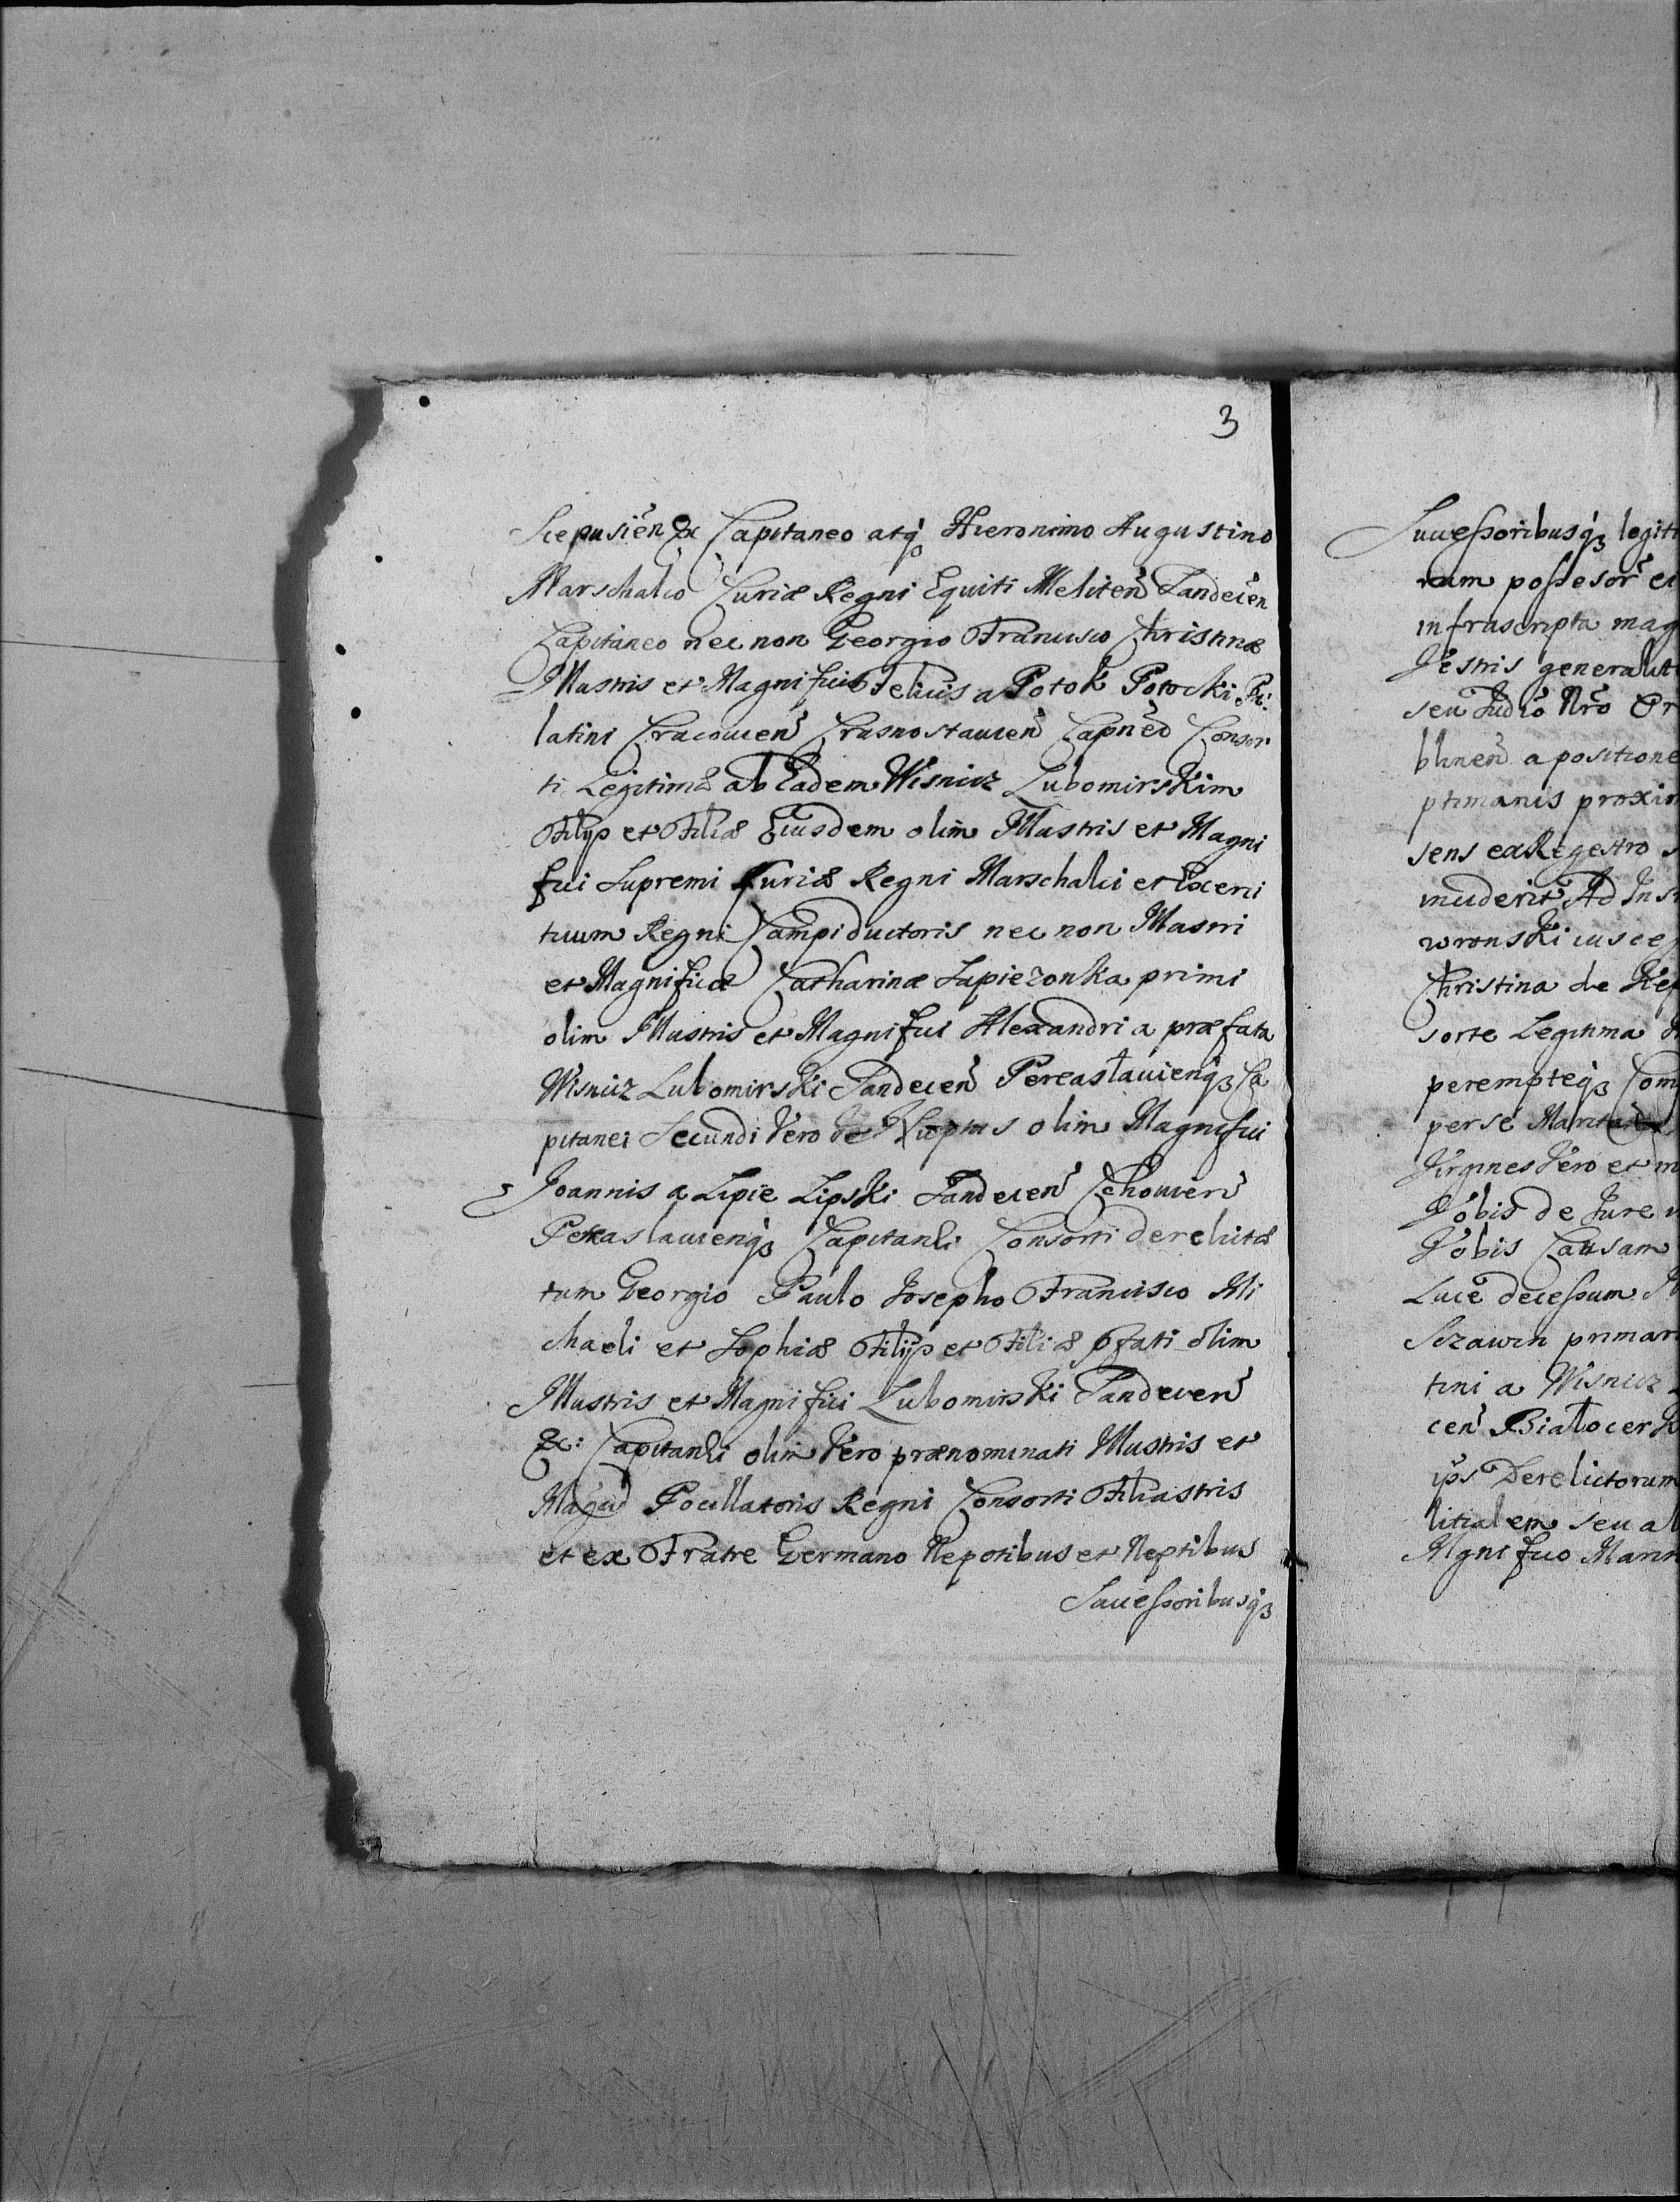 3
Scepusien̄ &c Capitaneo atqꝫ Hieronimo Augustino
Marschalco Curiæ Regni Equiti Meliten̄ Sandecen̄
Capitaneo nec non Georgio Francisco Christinæ
Illustris et Magnifici Felicis a Potok Potocki Pa:
latini Cracovien̄ Crasnostavien̄ Capn̄eo Consor
ti Legitimæ ab Eadem Wisnicz Lubomirskim
Filijs et Filiæ Eiusdem olim Illustris et Magni
fici Supremi Curiæ Regni Marschalci et Exerci
tuum Regni Campiductoris nec non Illustri
et Magnificæ Catharinæ Sapiezonka primi
olim Illustris et Magnifici Alexandri a præfata
Wisnicz Lubomirski Sandecen̄ Pereasławienqꝫ Ca
pitanei Secundi Vero olim Magnifici
Joannis a Lipie Lipski Sandecen̄ Czchovien̄
Pereaslavienqꝫ Capitanei Consorti derelictæ
tum Georgio Paulo Josepho Francisco Mi
chaeli et Sophiæ Filijs et Filiæ pfati olim
Illustris et Magnifici Lubomirski Sandecen̄
&c: Capitanei olim Vero prænominati Illustris et
Magci Pocillatoris Regni Consorti Filiastris
et ex Fratre Germano Nepotibus et Neptibus
Successoribusqꝫ
Successoribusqꝫ legiti
rum possesor̄
infrascripta mag
Vestris generalit
seu Judio Nr̄o Or
blinen̄ a positione
ptimanis proxim
sens ex Regestro
inciderit Ad Ins
wronski
Christina de
sorte Legitima
perempteqꝫ Com
per se
Virgines Vero et
Vobis de Jure
Vobis Causam
Luce decessum
Sczawin primar
tini a Wisnicz
cen̄ Białocerk
ijs Derelictorum
litialem seu al
Mgnifico Marit